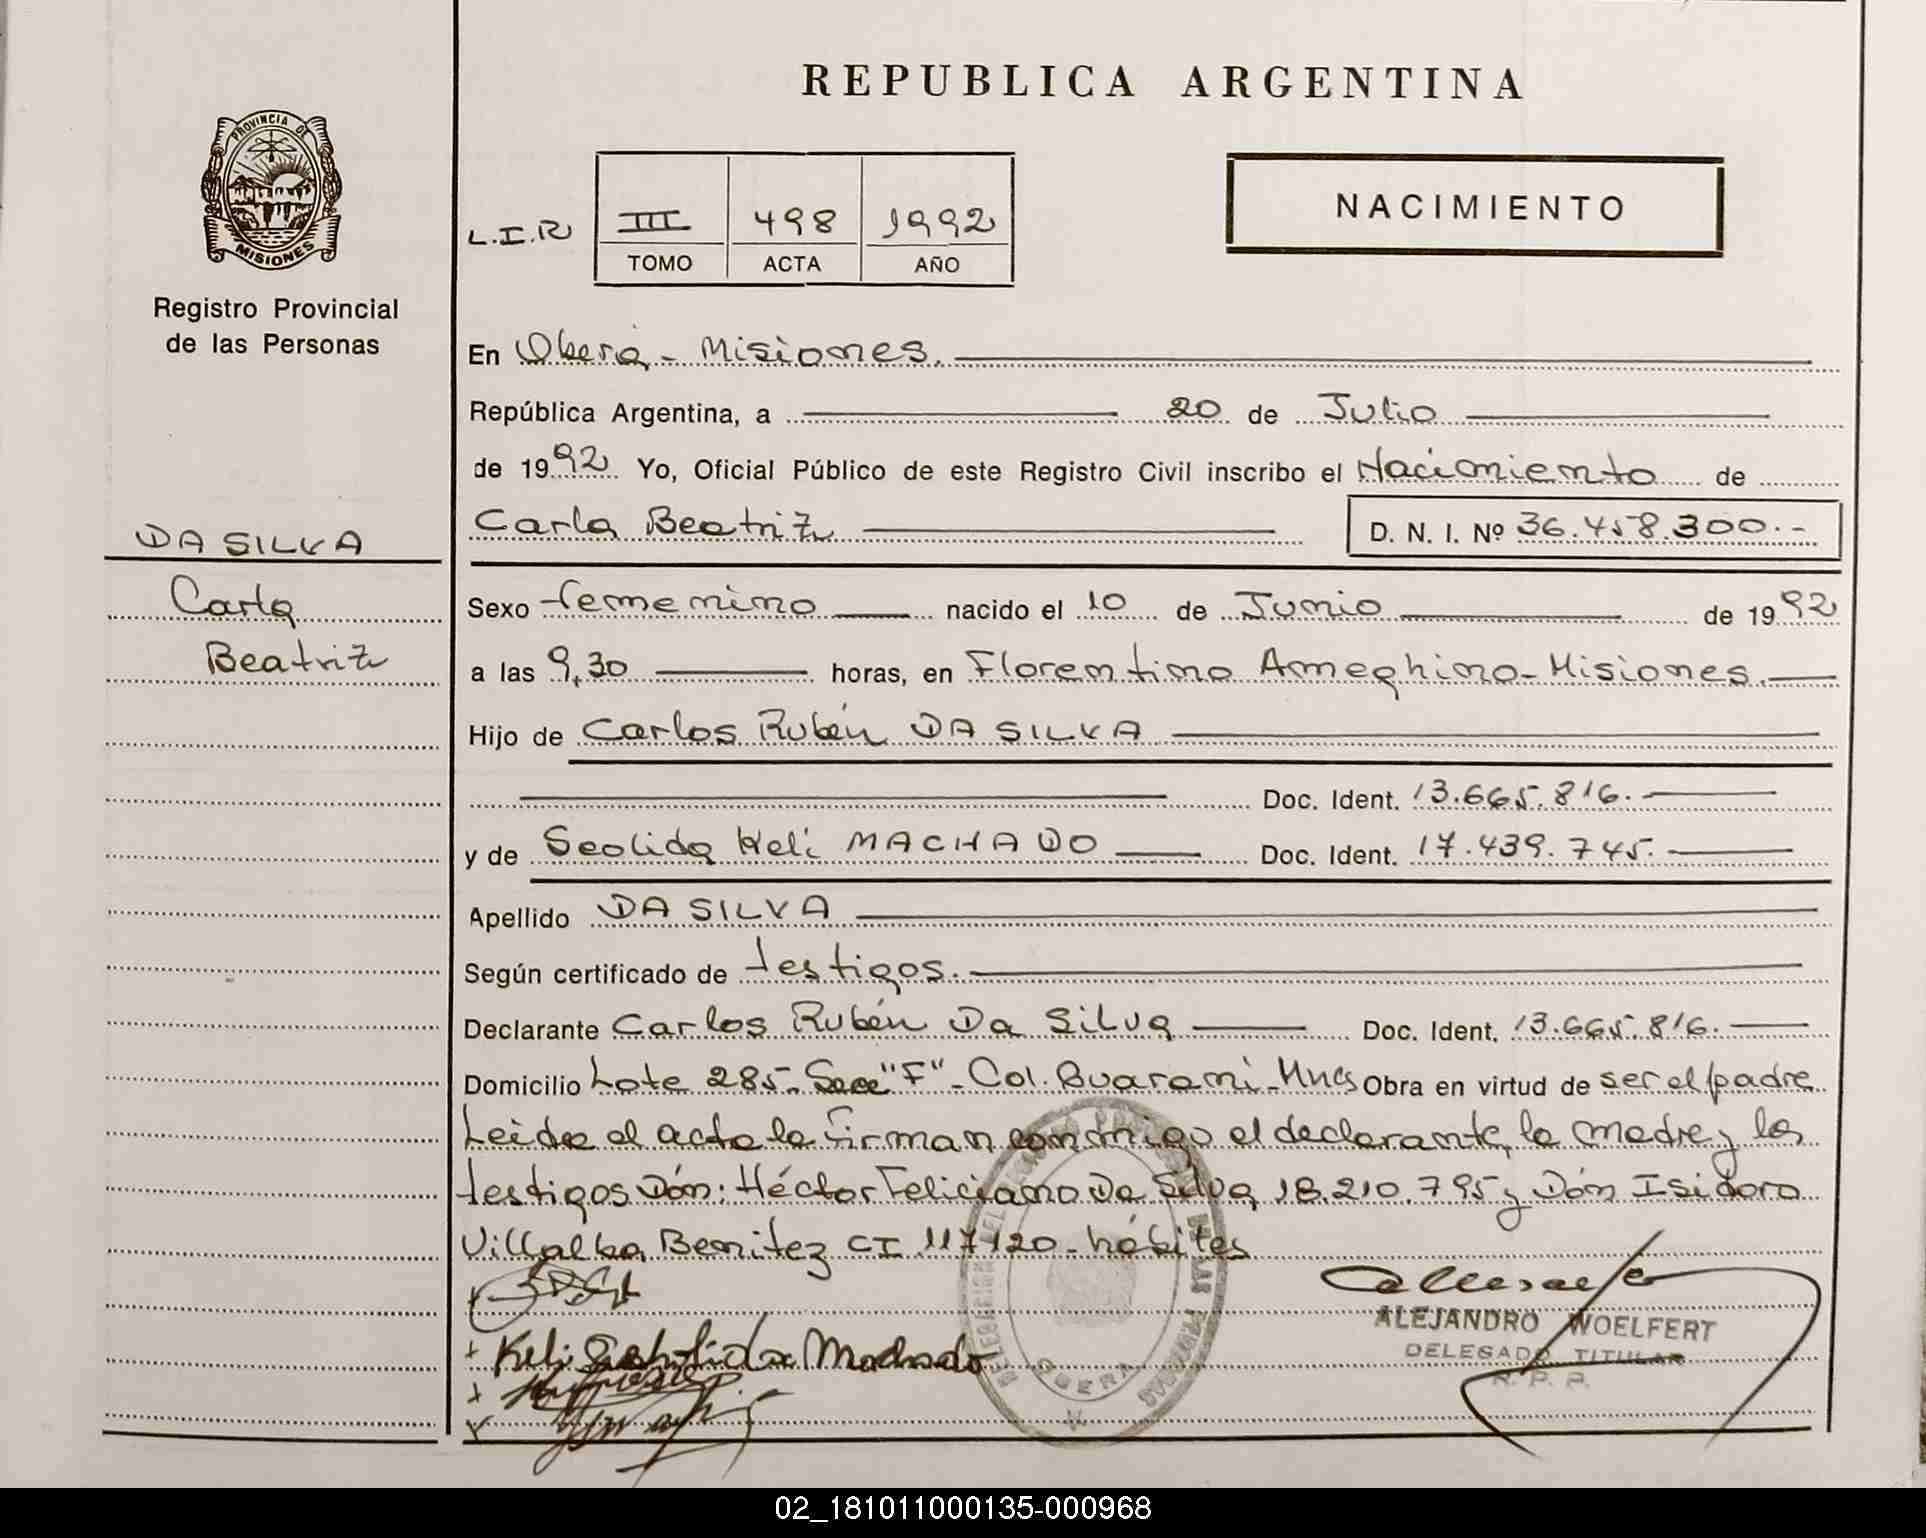 REPUBLICA ARGENTINA
PROVINCIA DE
MISIONES
Registro Provincial
de las Personas
L.I.R III 498 1992
TOMO ACTA AÑO
NACIMIENTO
En Oberá - Misiones.
República Argentina, a 20 de Julio
de 1992 Yo, Oficial Público de este Registro Civil inscribo el Nacimiento de
Carla Beatriz D. N. I. Nº 36.458.300.-
DA SILVA
Carla
Beatriz
Sexo femenino nacido el 10 de Junio de 1992
a las 9,30 horas, en Florentino Ameghino - Misiones.
Hijo de Carlos Rubén DA SILVA
Doc. Ident. 13.665.816.
y de Seolida Keli MACHADO Doc. Ident. 17.439.745.
Apellido DA SILVA
Según certificado de testigos.
Declarante Carlos Rubén Da Silva Doc. Ident. 13.665.816.
Domicilio Lote 285- Secc "F" - Col. Guarani - Mnes Obra en virtud de ser el padre
Leida el acta la firman conmigo el declarante, la madre y los
testigos Dón: Héctor Feliciano Da Silva 18.210.795 y Dón Isidoro
Villalba Benitez CI 117120 - hábiles
Keli Machado
ALEJANDRO WOELFERT
DELEGADO TITULAR
R. P. P.
DELEGACION DEL REGISTRO PROVINCIAL DE LAS PERSONAS
OBERA
02_181011000135-000968